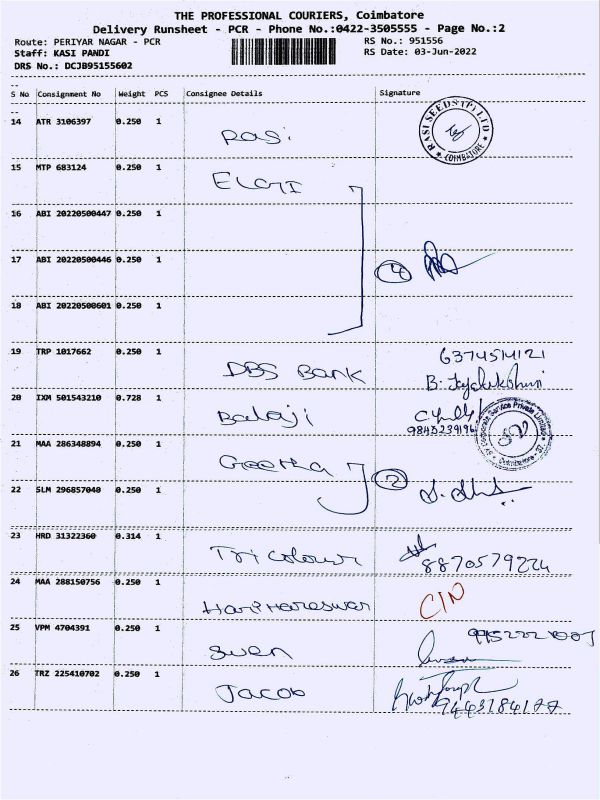 THE PROFESSIONAL COURIERS, Coimbatore
Delivery Runsheet - PCR - Phone No.:0422-3505555 - Page No.:2
Route: PERIYAR NAGAR - PCR RS No.: 951556
Staff: KASI PANDI RS Date: 03-Jun-2022
DRS No.: DCJB95155602
S No Consignment No Weight PCS Consignee Details Signature
14 ATR 3106397 0.250 1 Rasi RASI SEEDS (P) LTD COIMBATORE
15 MTP 683124 0.250 1 ELGI
16 ABI 20220500447 0.250 1
17 ABI 20220500446 0.250 1 4
18 ABI 20220500601 0.250 1
19 TRP 1017662 0.250 1 DBS Bank 6374514121
B. Jayalakshmi
20 IXM 501543210 0.728 1 Balaji
9843239196
Corporate Service Private Limited Coimbatore
21 MAA 286348894 0.250 1 Geetha
2
22 SLM 296857040 0.250 1
23 HRD 31322360 0.314 1 Tri colour 8870579224
24 MAA 288150756 0.250 1 Harihareswar C/N
25 VPM 4704391 0.250 1 Swen
26 TRZ 225410702 0.250 1 Jacob